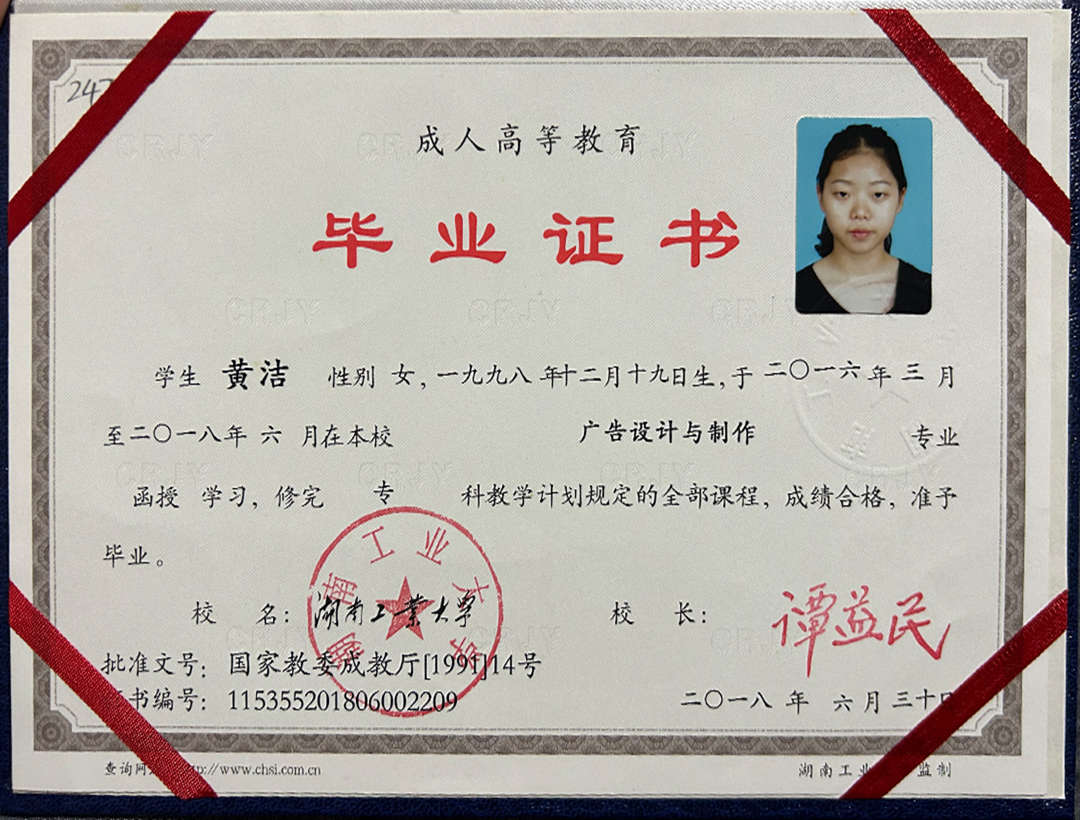 247
成人高等教育
毕业证书
学生 黄洁 性别 女，一九九八年十二月十九日生，于二〇一六年三月
至二〇一八年六月在本校 广告设计与制作 专业
函授 学习，修完 专 科教学计划规定的全部课程，成绩合格，准予
毕业。
校 名：湖南工业大学 校 长：谭益民
湖南工业大学
批准文号：国家教委成教厅[1991]14号
书编号：115355201806002209 二〇一八年六月三十日
查询网 tp://www.chsi.com.cn 湖南工业 监制